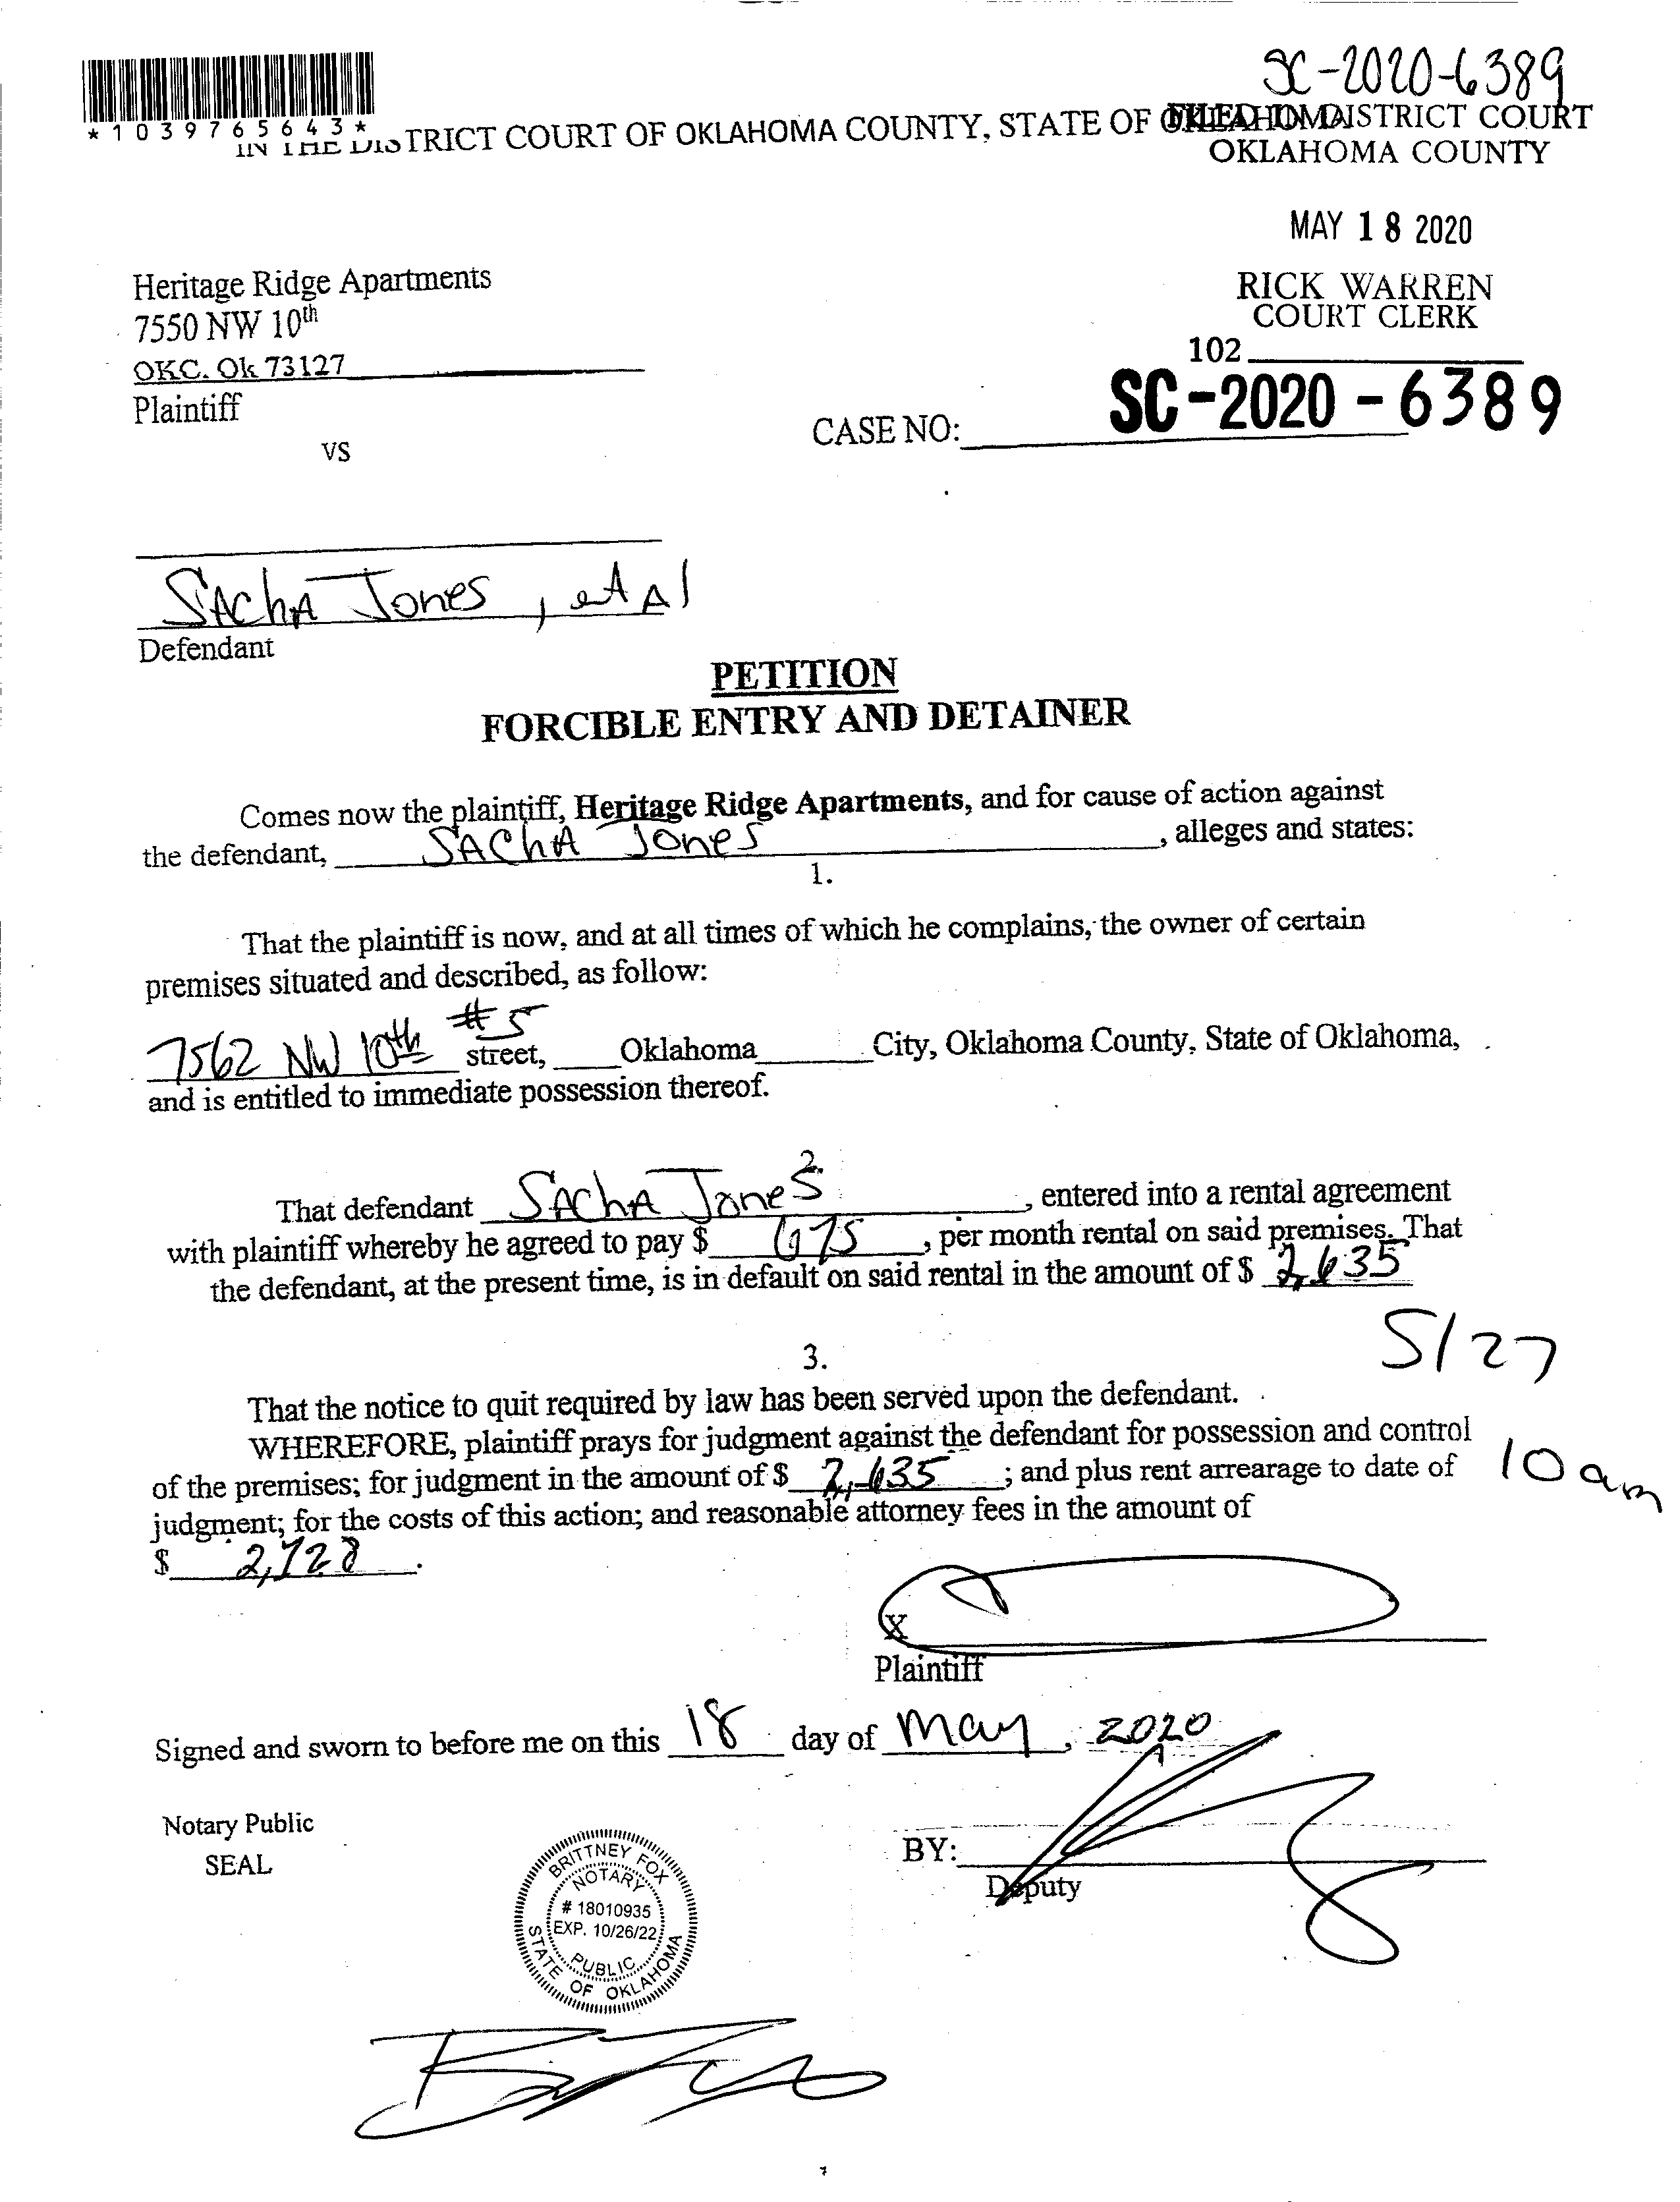 SC-2020-6389
*1039765643*
IN THE DISTRICT COURT OF OKLAHOMA COUNTY, STATE OF OKLAHOMA
FILED IN DISTRICT COURT
OKLAHOMA COUNTY
MAY 18 2020
RICK WARREN
COURT CLERK
102
Heritage Ridge Apartments
7550 NW 10th
OKC. Ok 73127
Plaintiff
VS
CASE NO: SC-2020-6389
SAchA Jones, et Al
Defendant
PETITION
FORCIBLE ENTRY AND DETAINER
Comes now the plaintiff, Heritage Ridge Apartments, and for cause of action against
the defendant, SAChA Jones, alleges and states:
1.
That the plaintiff is now, and at all times of which he complains, the owner of certain
premises situated and described, as follow:
7562 NW 10th #5 street, Oklahoma City, Oklahoma County, State of Oklahoma,
and is entitled to immediate possession thereof.
2.
That defendant SAchA Jones, entered into a rental agreement
with plaintiff whereby he agreed to pay $ 675, per month rental on said premises. That
the defendant, at the present time, is in default on said rental in the amount of $ 2,635
5/27
3.
That the notice to quit required by law has been served upon the defendant.
WHEREFORE, plaintiff prays for judgment against the defendant for possession and control
of the premises; for judgment in the amount of $ 2,635; and plus rent arrearage to date of
10am
judgment; for the costs of this action; and reasonable attorney fees in the amount of
$ 2,728.
X
Plaintiff
Signed and sworn to before me on this 18 day of May, 2020
Notary Public
SEAL
BY:
Deputy
BRITTNEY FOX
NOTARY
# 18010935
EXP. 10/26/22
PUBLIC
STATE OF OKLAHOMA